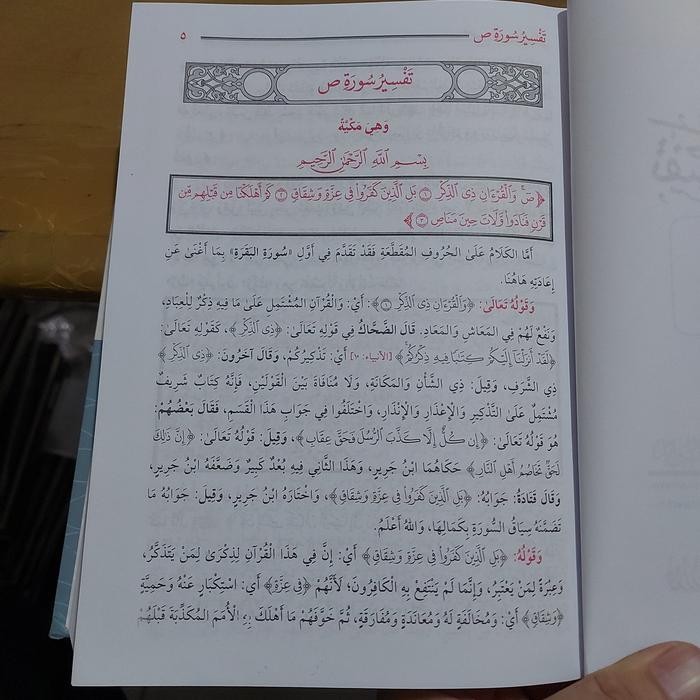 تَفْسِيرُ سُورَةِ ص ٥
تَفْسِيرُ سُورَةِ ص
وَهِيَ مَكِّيَّةٌ
بِسْمِ اللَّهِ الرَّحْمَٰنِ الرَّحِيمِ
﴿صٓ وَالْقُرْءَانِ ذِى الذِّكْرِ ۝١ بَلِ الَّذِينَ كَفَرُوا۟ فِى عِزَّةٍ وَشِقَاقٍ ۝٢ كَمْ أَهْلَكْنَا مِن قَبْلِهِم مِّن
قَرْنٍ فَنَادَوا۟ وَّلَاتَ حِينَ مَنَاصٍ ۝٣﴾
أَمَّا الْكَلَامُ عَلَى الْحُرُوفِ الْمُقَطَّعَةِ فَقَدْ تَقَدَّمَ فِي أَوَّلِ «سُورَةِ الْبَقَرَةِ» بِمَا أَغْنَى عَنْ
إِعَادَتِهِ هَاهُنَا.
وَقَوْلُهُ تَعَالَى: ﴿وَالْقُرْءَانِ ذِى الذِّكْرِ ۝١﴾ أَيْ: وَالْقُرْآنِ الْمُشْتَمِلِ عَلَى مَا فِيهِ ذِكْرٌ لِلْعِبَادِ،
وَنَفْعٌ لَهُمْ فِي الْمَعَاشِ وَالْمَعَادِ. قَالَ الضَّحَّاكُ فِي قَوْلِهِ تَعَالَى: ﴿ذِى الذِّكْرِ﴾، كَقَوْلِهِ تَعَالَى:
﴿لَقَدْ أَنزَلْنَآ إِلَيْكُمْ كِتَٰبًا فِيهِ ذِكْرُكُمْ﴾ [الأنبياء: ١٠] أَيْ: تَذْكِيرُكُمْ، وَقَالَ آخَرُونَ: ﴿ذِى الذِّكْرِ﴾
ذِي الشَّرَفِ، وَقِيلَ: ذِي الشَّأْنِ وَالْمَكَانَةِ، وَلَا مُنَافَاةَ بَيْنَ الْقَوْلَيْنِ، فَإِنَّهُ كِتَابٌ شَرِيفٌ
مُشْتَمِلٌ عَلَى التَّذْكِيرِ وَالْإِعْذَارِ وَالْإِنْذَارِ، وَاخْتَلَفُوا فِي جَوَابِ هَذَا الْقَسَمِ، فَقَالَ بَعْضُهُمْ:
هُوَ قَوْلُهُ تَعَالَى: ﴿إِن كُلٌّ إِلَّا كَذَّبَ الرُّسُلَ فَحَقَّ عِقَابِ﴾، وَقِيلَ: قَوْلُهُ تَعَالَى: ﴿إِنَّ ذَٰلِكَ
لَحَقٌّ تَخَاصُمُ أَهْلِ النَّارِ﴾ حَكَاهُمَا ابْنُ جَرِيرٍ، وَهَذَا الثَّانِي فِيهِ بُعْدٌ كَبِيرٌ وَضَعَّفَهُ ابْنُ جَرِيرٍ،
وَقَالَ قَتَادَةُ: جَوَابُهُ: ﴿بَلِ الَّذِينَ كَفَرُوا۟ فِى عِزَّةٍ وَشِقَاقٍ﴾، وَاخْتَارَهُ ابْنُ جَرِيرٍ، وَقِيلَ: جَوَابُهُ مَا
تَضَمَّنَهُ سِيَاقُ السُّورَةِ بِكَمَالِهَا، وَاللهُ أَعْلَمُ.
وَقَوْلُهُ: ﴿بَلِ الَّذِينَ كَفَرُوا۟ فِى عِزَّةٍ وَشِقَاقٍ﴾ أَيْ: إِنَّ فِي هَذَا الْقُرْآنِ لِذِكْرَى لِمَنْ يَتَذَكَّرُ،
وَعِبْرَةً لِمَنْ يَعْتَبِرُ، وَإِنَّمَا لَمْ يَنْتَفِعْ بِهِ الْكَافِرُونَ؛ لِأَنَّهُمْ ﴿فِى عِزَّةٍ﴾ أَيْ: اسْتِكْبَارٍ عَنْهُ وَحَمِيَّةٍ
﴿وَشِقَاقٍ﴾ أَيْ: وَمُخَالَفَةٍ لَهُ وَمُعَانَدَةٍ وَمُفَارَقَةٍ، ثُمَّ خَوَّفَهُمْ مَا أَهْلَكَ بِهِ الْأُمَمَ الْمُكَذِّبَةَ قَبْلَهُمْ